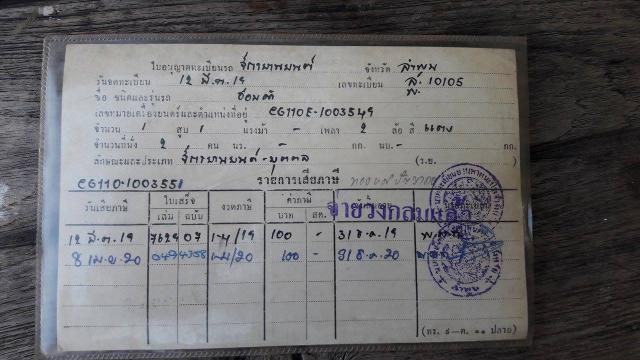 ใบอนุญาตทะเบียนรถ จักรยานยนต์ จังหวัด ลำพูน
วันจดทะเบียน 12 มี.ค. 19 เลขทะเบียน ลพ. 10105
ชื่อ ชนิดและรุ่นรถ ฮอนด้า
เลขหมายเครื่องยนตร์และตำแหน่งที่อยู่ CG110E-1003549
จำนวน 1 สูบ 1 แรงม้า - เพลา 2 ล้อ สี แดง
จำนวนที่นั่ง 2 คน นร. - กก. นบ. - กก.
ลักษณะและประเภท จักรยานยนต์-บุคคล (ร.ย. )
CG110-1003551 รายการเสียภาษี
วันเสียภาษี ใบเสร็จ เล่ม ฉบับ งวดภาษี ค่าภาษี บาท สต.
จ่ายวงกลมแล้ว
12 มี.ค. 19 7629 07 1-4/19 100 - 31 ธ.ค. 19
8 เม.ย. 20 1-4/20 100 - 31 ธ.ค. 20
ลำพูน